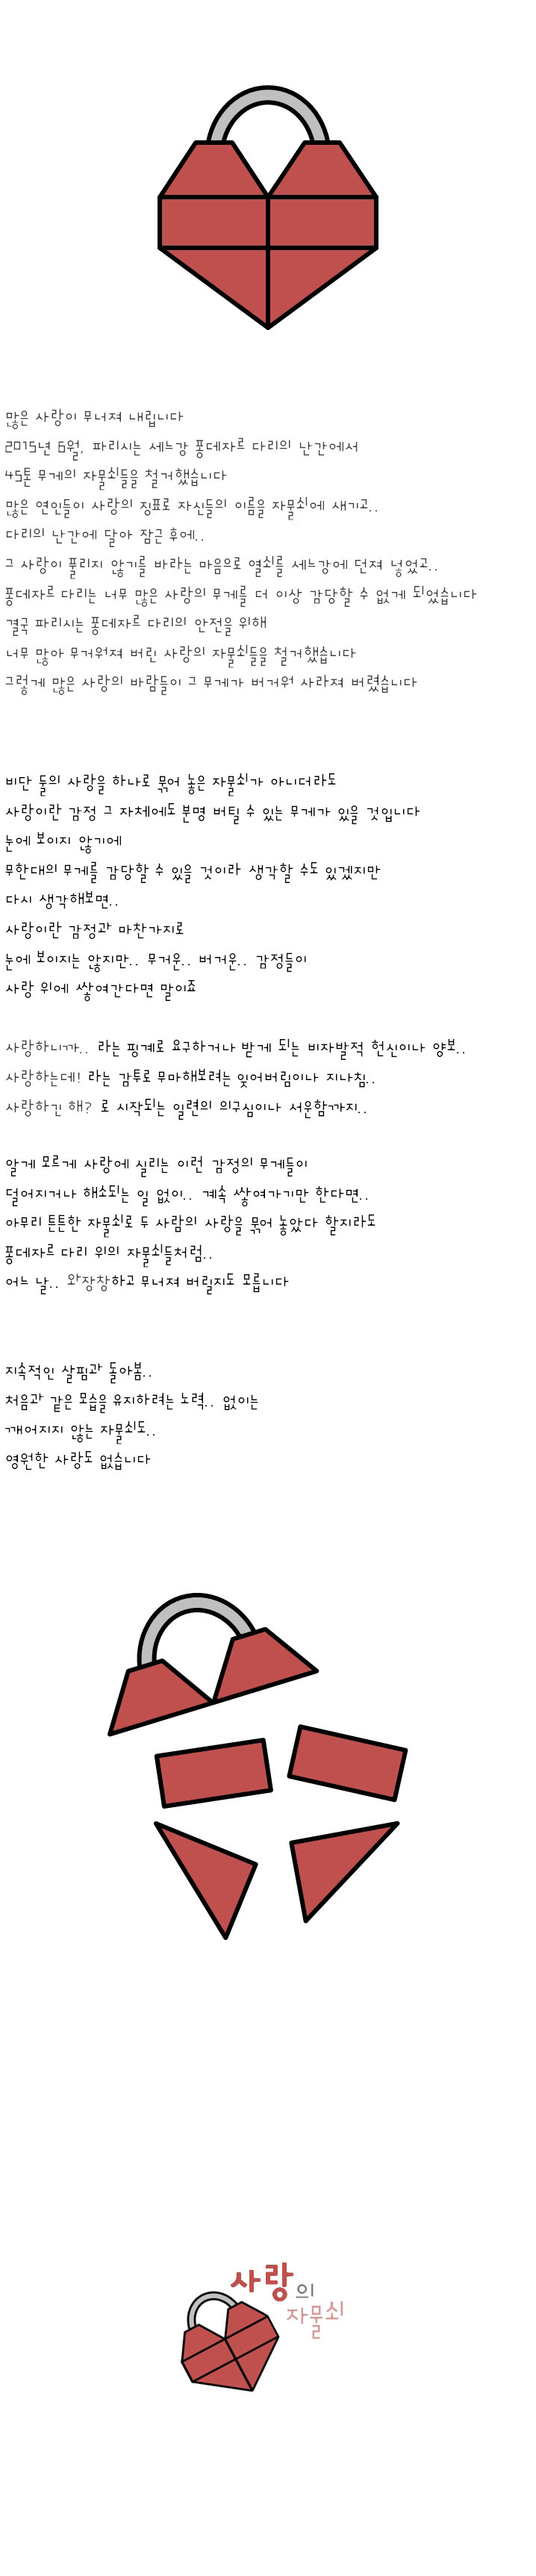 많은 사랑이 무너져 내립니다
2015년 6월, 파리시는 세느강 퐁데자르 다리의 난간에서
45톤 무게의 자물쇠들을 철거했습니다
많은 연인들이 사랑의 징표로 자신들의 이름을 자물쇠에 새기고..
다리의 난간에 달아 잠근 후에..
그 사랑이 풀리지 않기를 바라는 마음으로 열쇠를 세느강에 던져 넣었고..
퐁데자르 다리는 너무 많은 사랑의 무게를 더 이상 감당할 수 없게 되었습니다
결국 파리시는 퐁데자르 다리의 안전을 위해
너무 많아 무거워져 버린 사랑의 자물쇠들을 철거했습니다
그렇게 많은 사랑의 바람들이 그 무게가 버거워 사라져 버렸습니다
비단 둘의 사랑을 하나로 묶어 놓은 자물쇠가 아니더라도
사랑이란 감정 그 자체에도 분명 버틸 수 있는 무게가 있을 것입니다
눈에 보이지 않기에
무한대의 무게를 감당할 수 있을 것이라 생각할 수도 있겠지만
다시 생각해보면..
사랑이란 감정과 마찬가지로
눈에 보이지는 않지만.. 무거운.. 버거운.. 감정들이
사랑 위에 쌓여간다면 말이죠
사랑하니까.. 라는 핑계로 요구하거나 받게 되는 비자발적 헌신이나 양보..
사랑하는데! 라는 감투로 무마해보려는 잊어버림이나 지나침..
사랑하긴 해? 로 시작되는 일련의 의구심이나 서운함까지..
알게 모르게 사랑에 실리는 이런 감정의 무게들이
덜어지거나 해소되는 일 없이.. 계속 쌓여가기만 한다면..
아무리 튼튼한 자물쇠로 두 사람의 사랑을 묶어 놓았다 할지라도
퐁데자르 다리 위의 자물쇠들처럼..
어느 날.. 와장창하고 무너져 버릴지도 모릅니다
지속적인 살핌과 돌아봄..
처음과 같은 모습을 유지하려는 노력.. 없이는
깨어지지 않는 자물쇠도..
영원한 사랑도 없습니다
사랑의
자물쇠